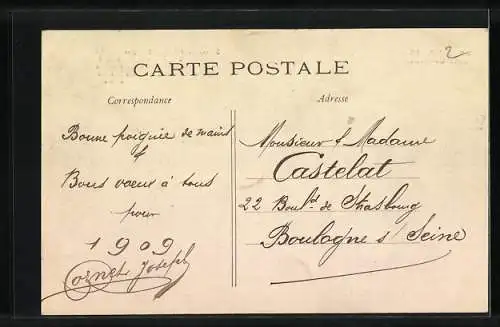 2
CARTE POSTALE
Correspondance
Adresse
Bonne poignée de mains
&
Bons voeux à tous
pour
1909
Cornet Joseph
Monsieur & Madame
Castelat
22 Boul.d de Strasbourg
Boulogne s/ Seine